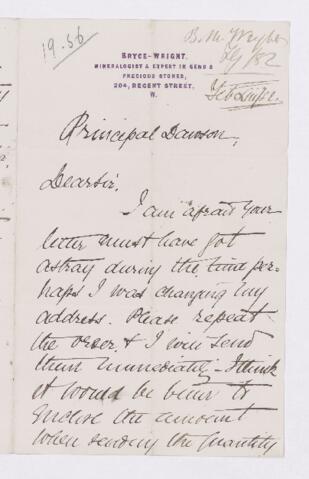 19.56
B. M. Wright
82
BRYCE-WRIGHT.
MINERALOGIST & EXPERT IN GEMS &
PRECIOUS STONES,
204, REGENT STREET.
W.
Principal Dawson,
Dear Sir.
I am afraid your
letter must have got
astray during the time per-
haps I was changing my
address. Please repeat
the order & I will send
them immediately - I think
it would be better to
enclose the amount
when sending the quantity